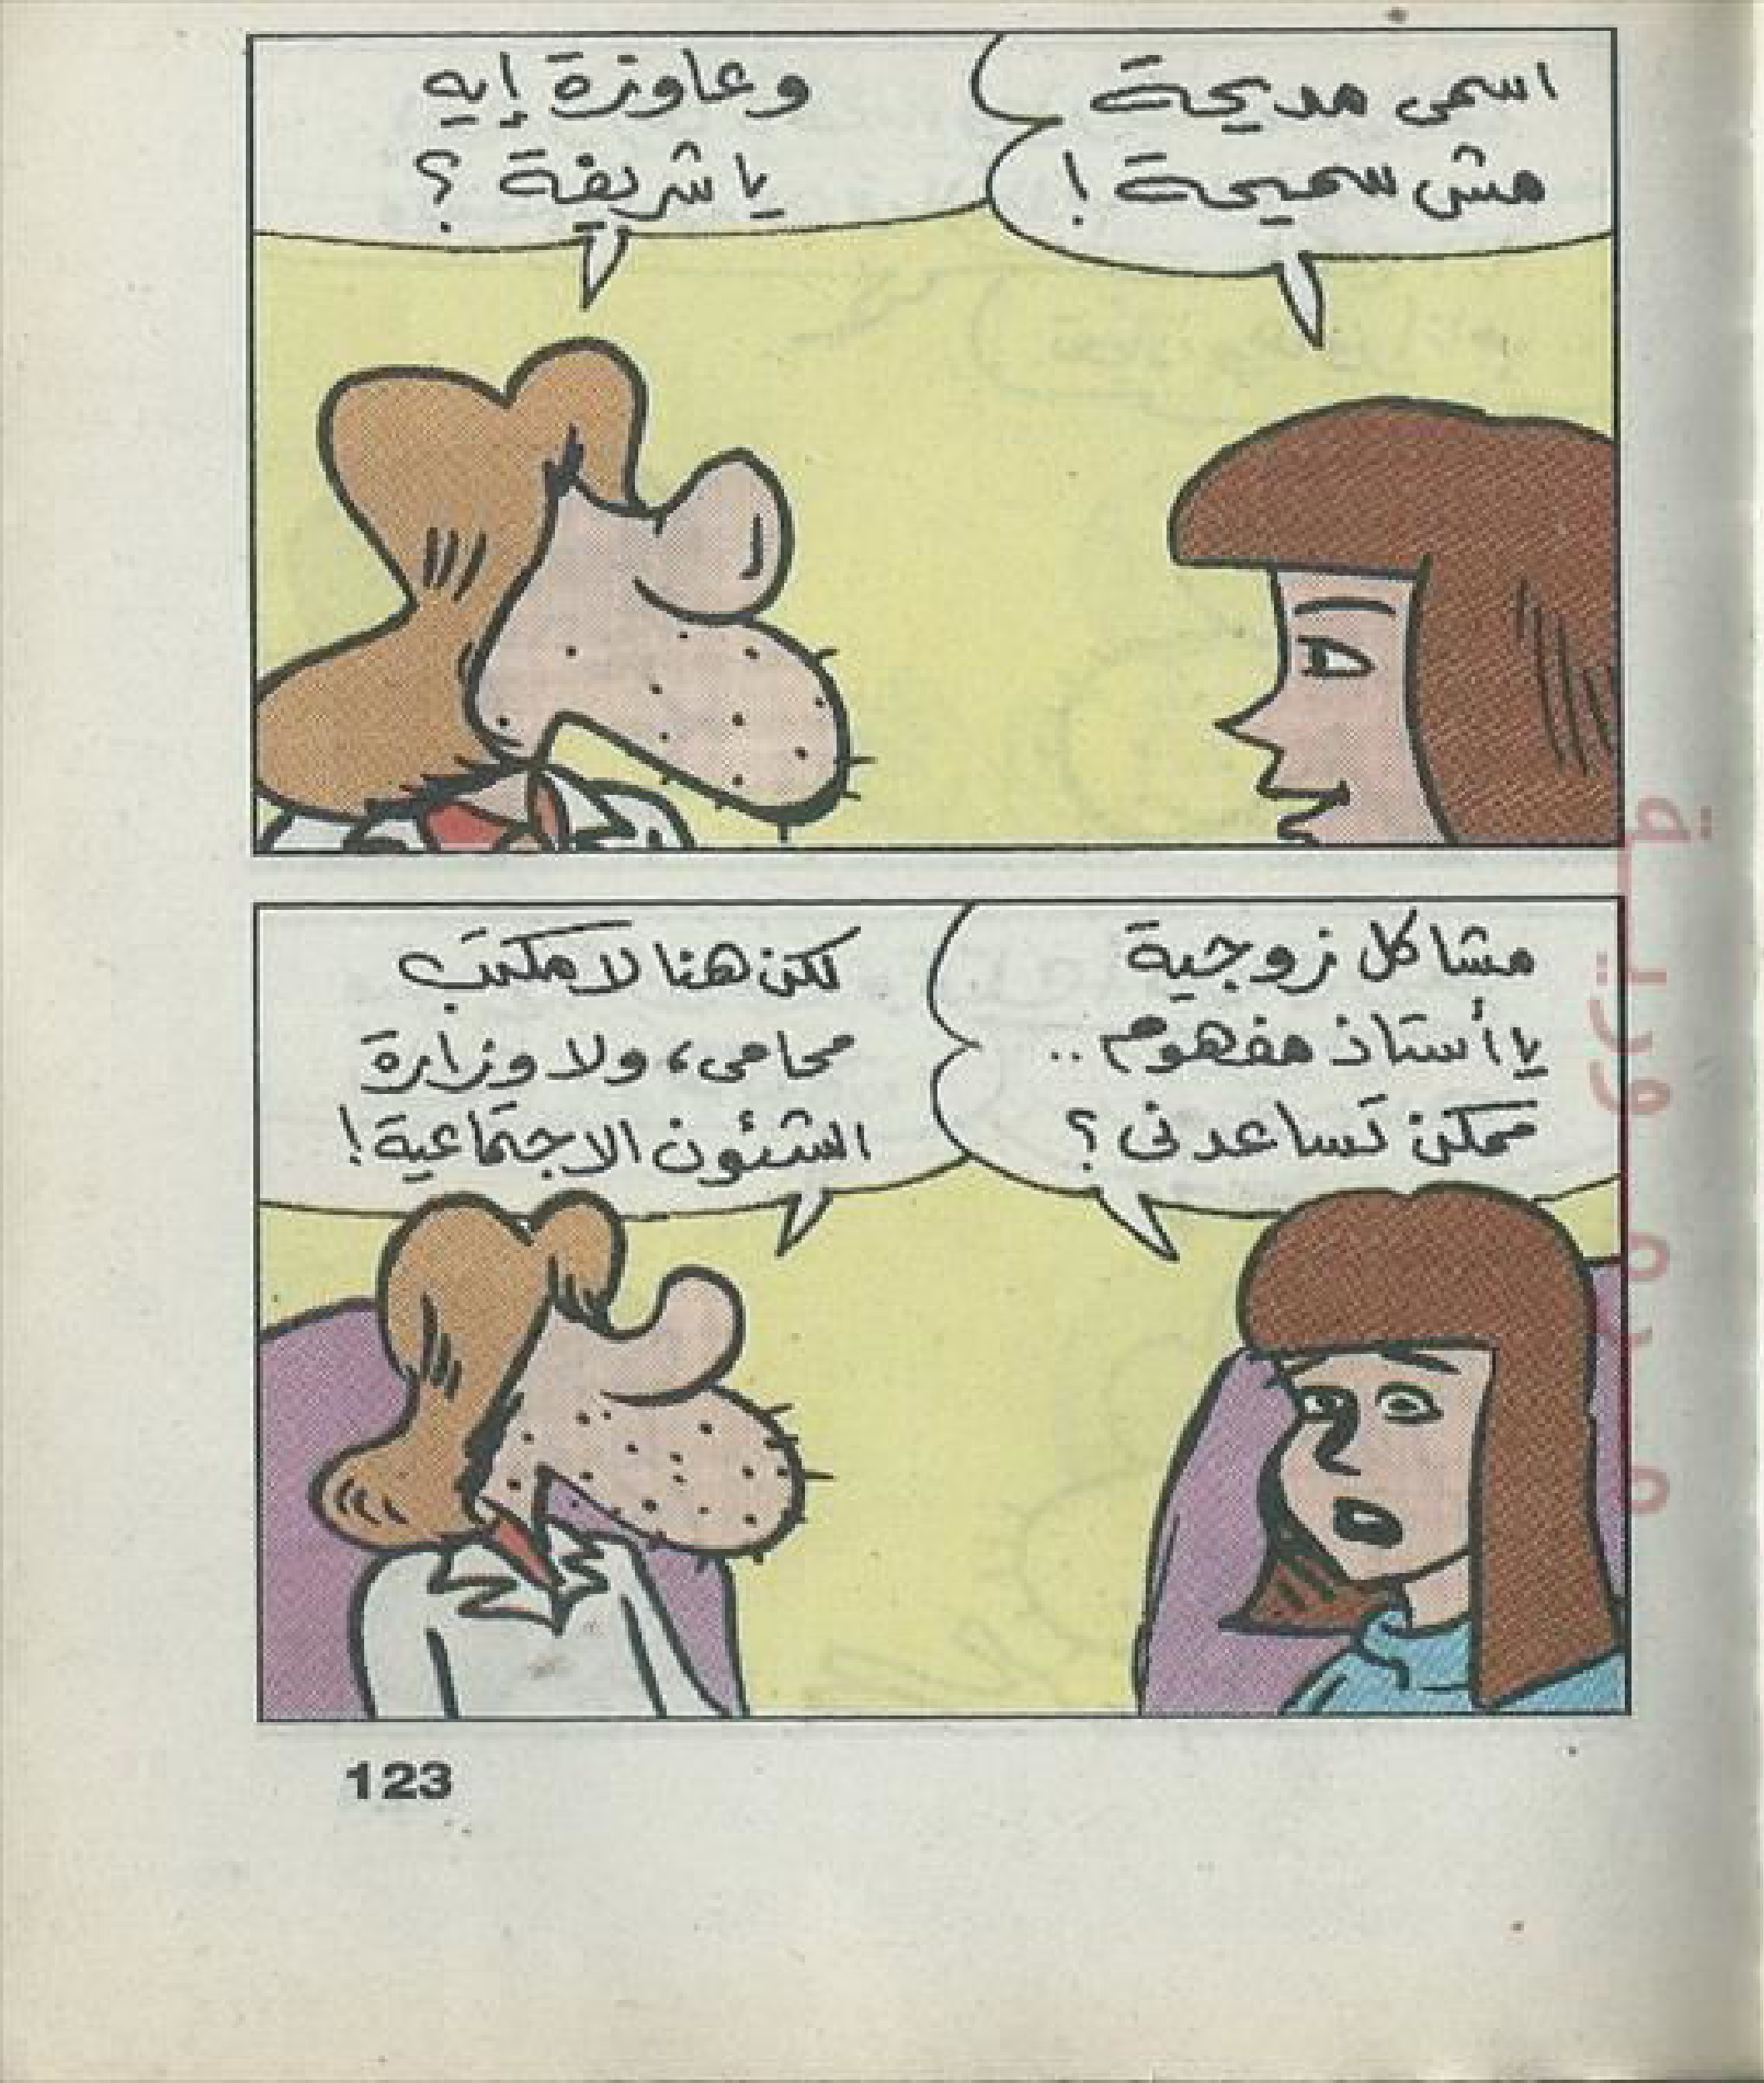 اسمى مديحة
مش سميحة!
وعاوزة إيه
يا شريفة؟
مشاكل زوجية
يا أستاذ مفهوم..
ممكن تساعدنى؟
لكن هنا لا مكتب
محامى، ولا وزارة
الشئون الاجتماعية!
123